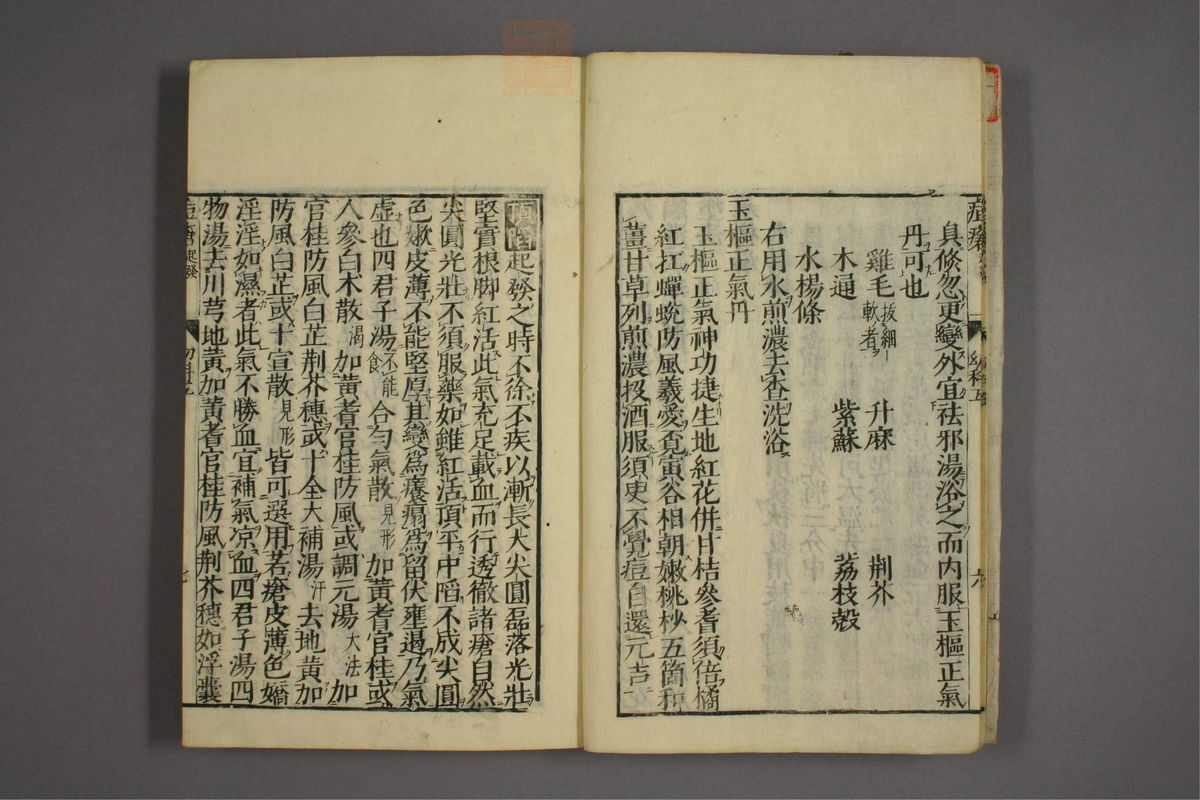 具倏忽更變外宜祛邪湯浴之而内服玉樞正氣
丹可也
雞毛拔細軟者 升麻 荆芥
木通 紫蘇 荔枝殼
水楊條
右用水煎濃去查洗浴
玉樞正氣丹
玉樞正氣神功捷生地紅花併甘桔參耆須倍橘
紅扛蟬蛻防風羲愛覔寅谷相朝嫩桃杪五箇和
薑甘草列煎濃投酒服須臾不覺痘自還元吉
頂陷起發之時不徐不疾以漸長大尖圓磊落光壯
堅實根脚紅活此氣充足載血而行透徹諸瘡自然
尖圓光壯不須服藥如雖紅活頂平中陷不成尖圓
色嫩皮薄不能堅厚其變爲癢塌爲留伏壅遏乃氣
虛也四君子湯不能食合勻氣散見形加黃耆官桂或
人參白术散渴加黃耆官桂防風或調元湯大法加
官桂防風白芷荆芥穗或十全大補湯汗去地黃加
防風白芷或十宣散見形皆可選用若瘡皮薄色嬌
淫淫如濕者此氣不勝血宜補氣凉血四君子湯四
物湯去川芎地黃加黃耆官桂防風荆芥穗如浮囊